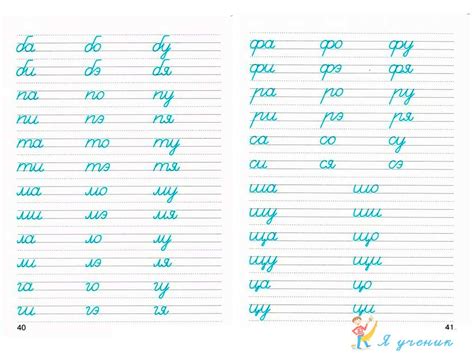 ба бо бу
би бэ бя
па по пу
пи пэ пя
та то ту
ти тэ тя
ма мо му
ми мэ мя
ла ло лу
ли лэ ля
га го гу
ги гэ гя
40
фа фо фу
фи фэ фя
ра ро ру
ри рэ ря
са со су
си ся сэ
ша шо
шу ши
ща що
щу щи
ца цо
цу ци
41
Я ученик